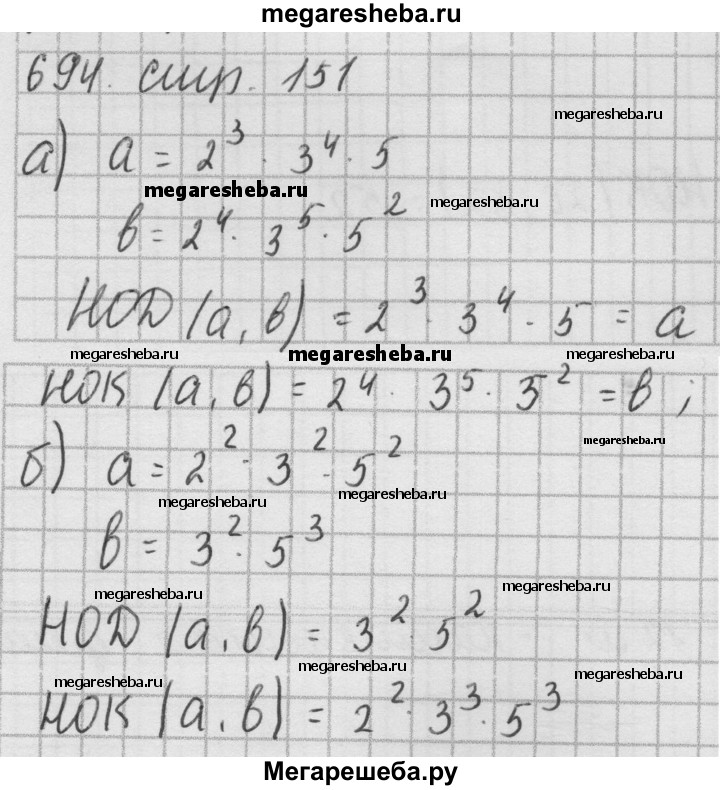 megaresheba.ru
694. стр. 151
megaresheba.ru
а) a = 2³ · 3⁴ · 5
megaresheba.ru
megaresheba.ru
в = 2⁴ · 3⁵ · 5²
НОД (а, в) = 2³ · 3⁴ · 5 = а
megaresheba.ru megaresheba.ru megaresheba.ru
НОК (а, в) = 2⁴ · 3⁵ · 5² = в ;
megaresheba.ru
б) а = 2² · 3² · 5²
megaresheba.ru
megaresheba.ru
в = 3² · 5³
megaresheba.ru
megaresheba.ru
НОД (а, в) = 3² · 5²
megaresheba.ru
megaresheba.ru
megaresheba.ru
НОК (а, в) = 2² · 3³ · 5³
Мегарешеба.ру